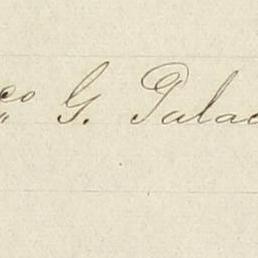 co G. Palac